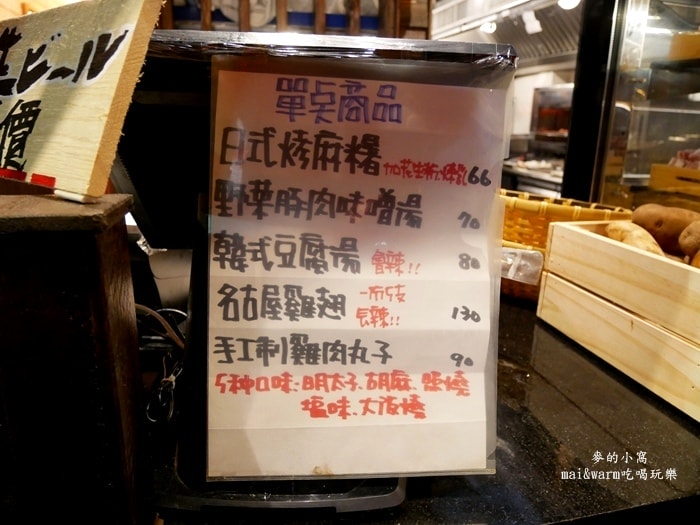 ビール
價
單点商品
日式烤麻糬 加花生粉/煉乳 66
野菜豚肉味噌湯 70
韓式豆腐湯 會辣!! 80
名古屋雞翅 一份5支 130
辣!!
手工制雞肉丸子 90
5种口味:明太子.胡麻.照燒
塩味.大阪燒
麥的小窩
mai&warm吃喝玩樂